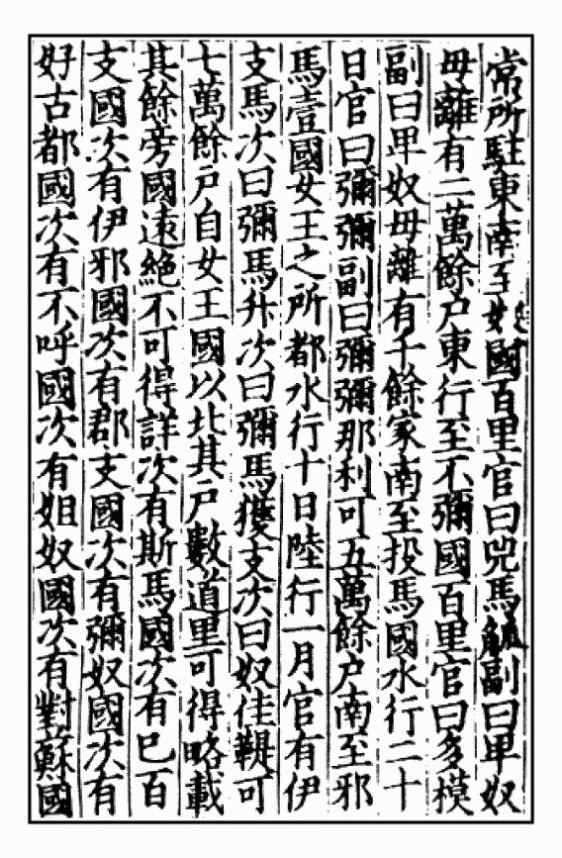 常所駐東南至奴國百里官曰兕馬觚副曰卑奴
母離有二萬餘户東行至不彌國百里官曰多模
副曰卑奴母離有千餘家南至投馬國水行二十
日官曰彌彌副曰彌彌那利可五萬餘户南至邪
馬壹國女王之所都水行十日陸行一月官有伊
支馬次曰彌馬升次曰彌馬獲支次曰奴佳鞮可
七萬餘户自女王國以北其户數道里可得略載
其餘旁國遠絶不可得詳次有斯馬國次有巳百
支國次有伊邪國次有郡支國次有彌奴國次有
好古都國次有不呼國次有姐奴國次有對蘇國